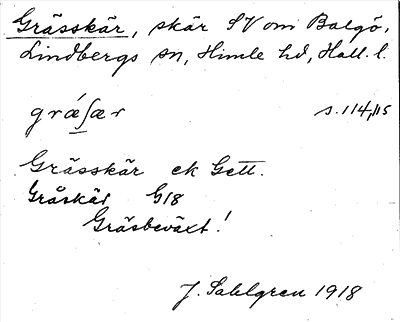 Grässkär, skär SV om Balgö,
Lindbergs sn, Himle hd, Hall. l.
græ´ʃær s. 114, 115
Grässkär ek Gett.
Gråskär G18
Gräsbeväxt!
J. Sahlgren 1918